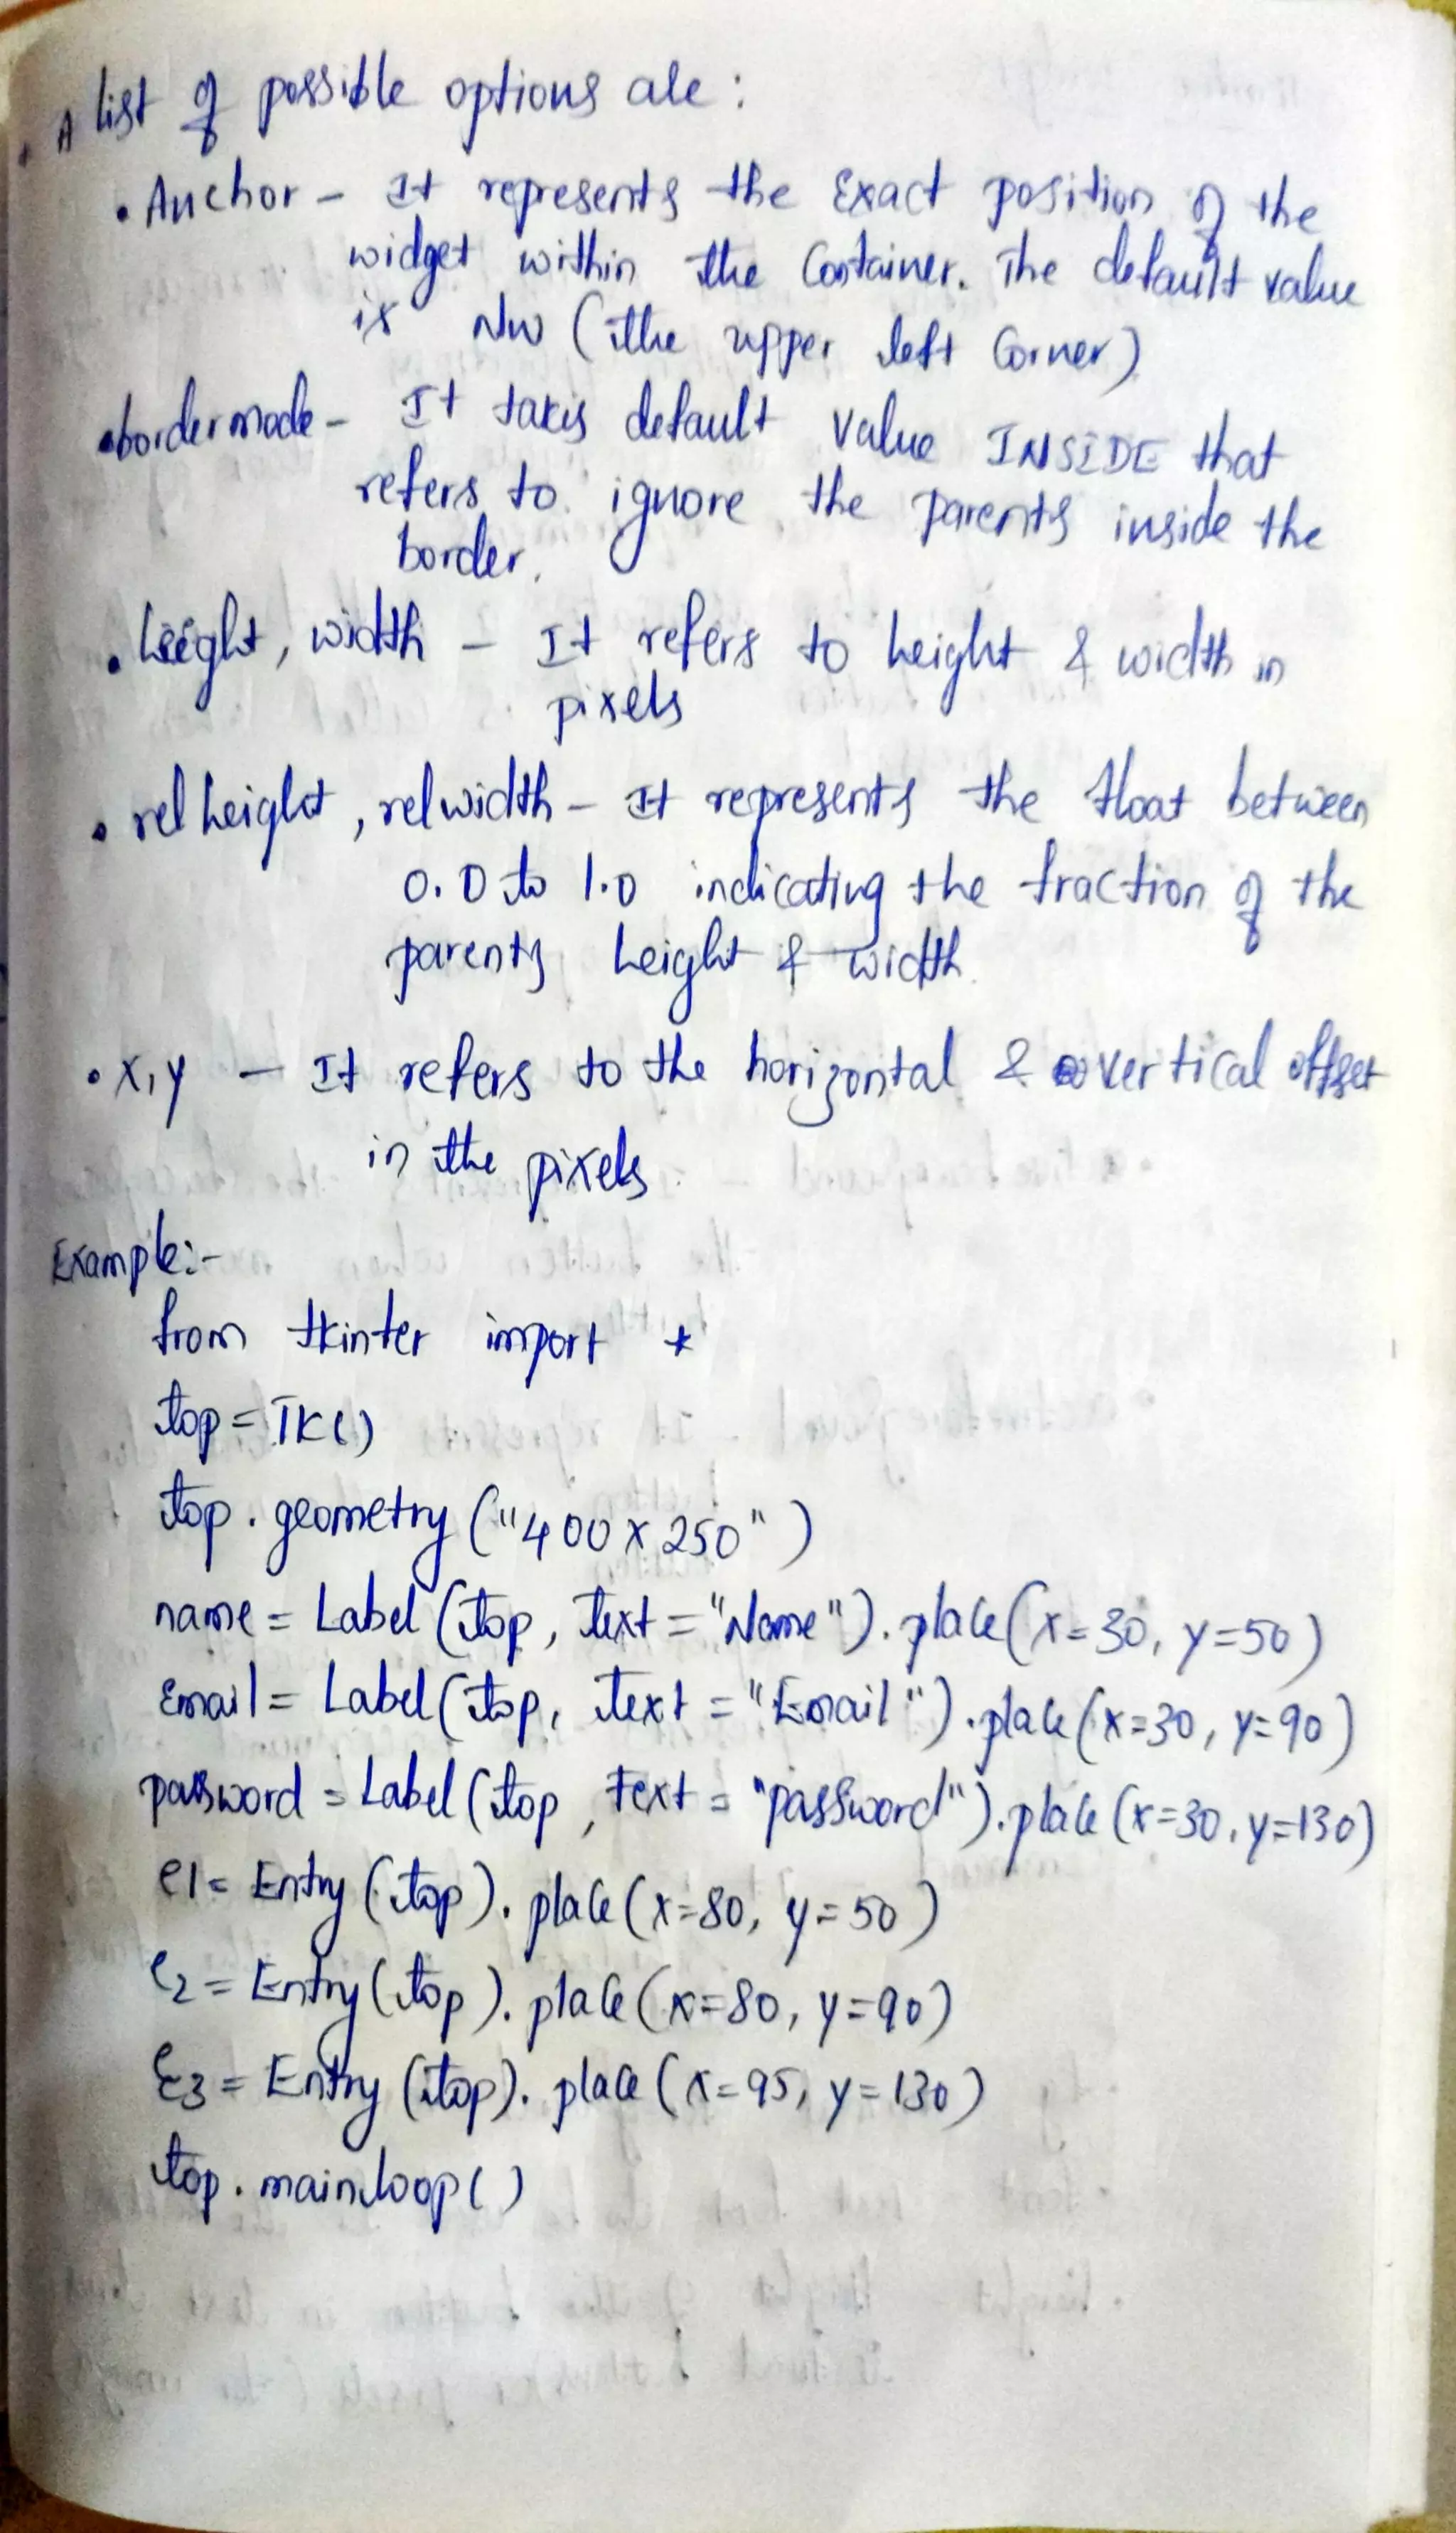 . A list of possible options are :
• Anchor - It represents the Exact position of the
widget within the Container. The default value
is NW (the upper left Corner)
• bordermode - It takes default value INSIDE that
refers to ignore the parents inside the
border.
• height, width - It refers to height & width in
pixels
• rel height, rel width - It represents the float between
0.0 to 1.0 indicating the fraction of the
parents height & width.
• X, Y - It refers to the horizontal & vertical offset
in the pixels.
Example:-
from tkinter import *
top = TK()
top. geometry ("400 x 250")
name = Label (top, text = "Name"). place (x=30, y=50)
Email = Label (top, text = "Email"). place (x=30, y=90)
password = Label (top, text = "password"). place (x=30, y=130)
e1 = Entry (top). place (x=80, y=50)
e2 = Entry (top). place (x=80, y=90)
E3 = Entry (top). place (x=95, y=130)
top. mainloop()